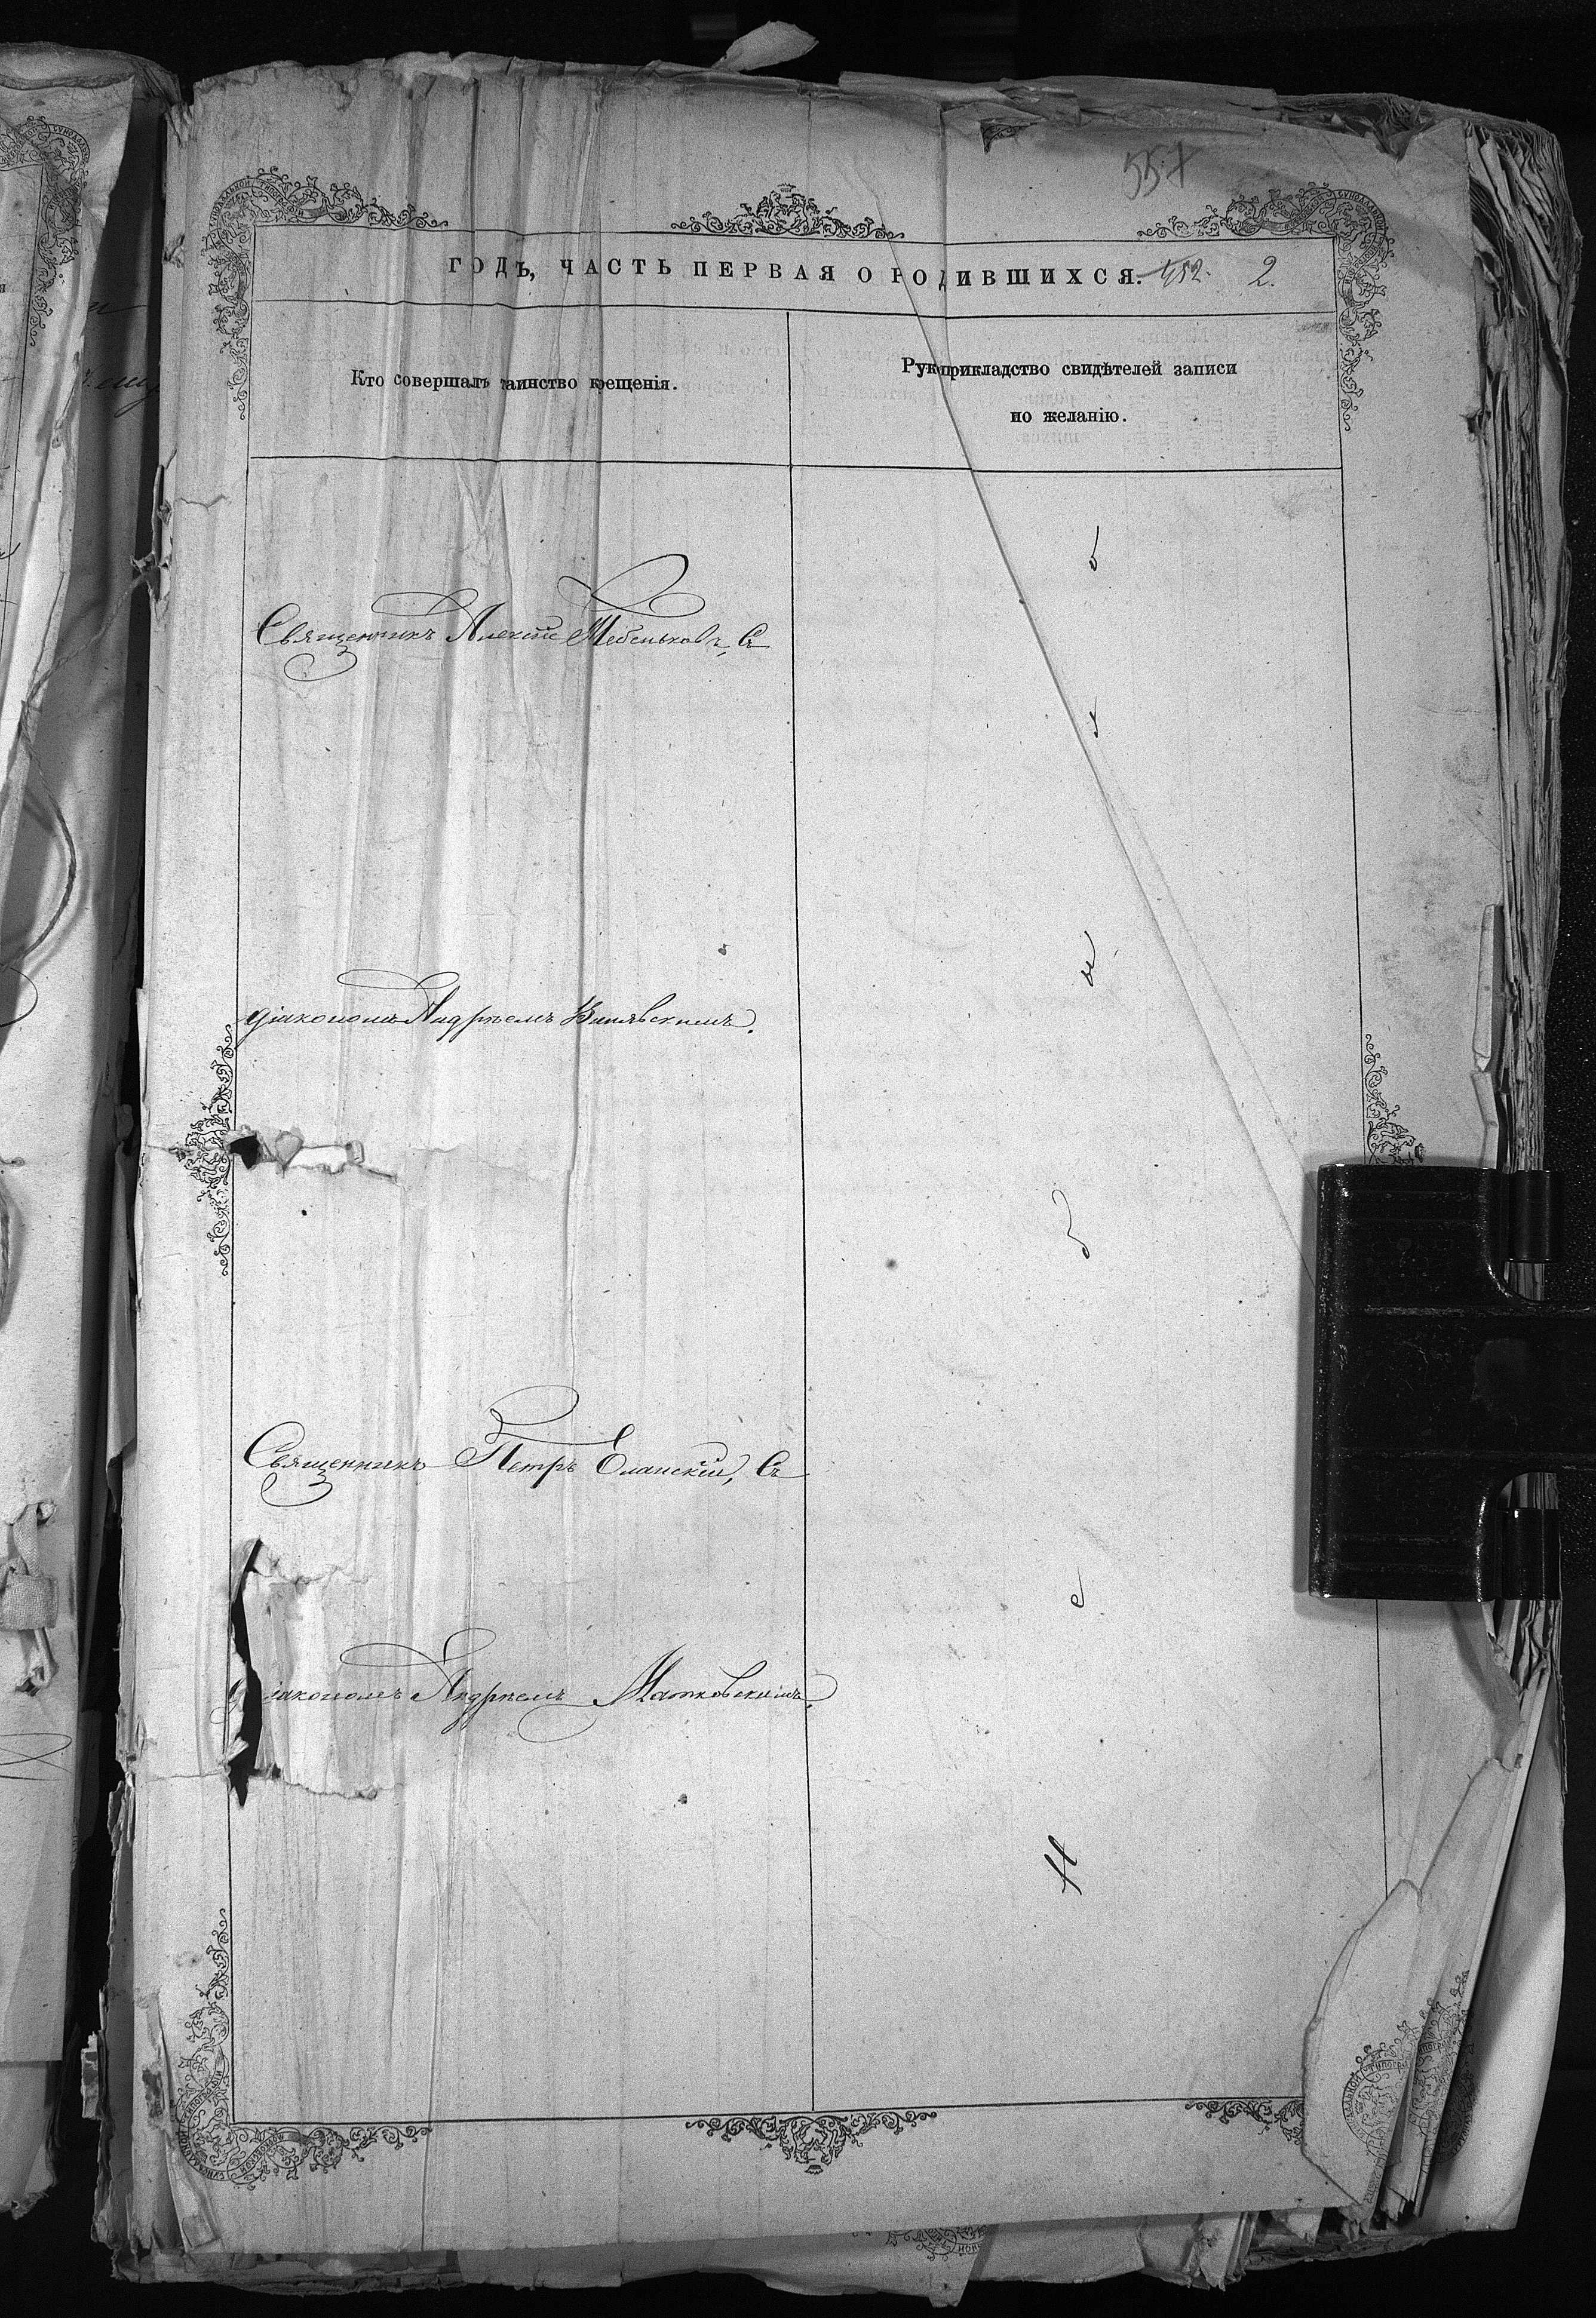 557
ГОДЪ, ЧАСТЬ ПЕРВАЯ О РОДИВШИХСЯ. 452. 2.
Кто совершалъ таинство крещенія.
Рукоприкладство свидѣтелей записи
по желанію.
Священникъ Алексій Тебеньковъ, Съ
діакономъ Андреемъ
Священникъ Петръ Еланскій, Съ
іакономъ Андреемъ Матковскимъ.